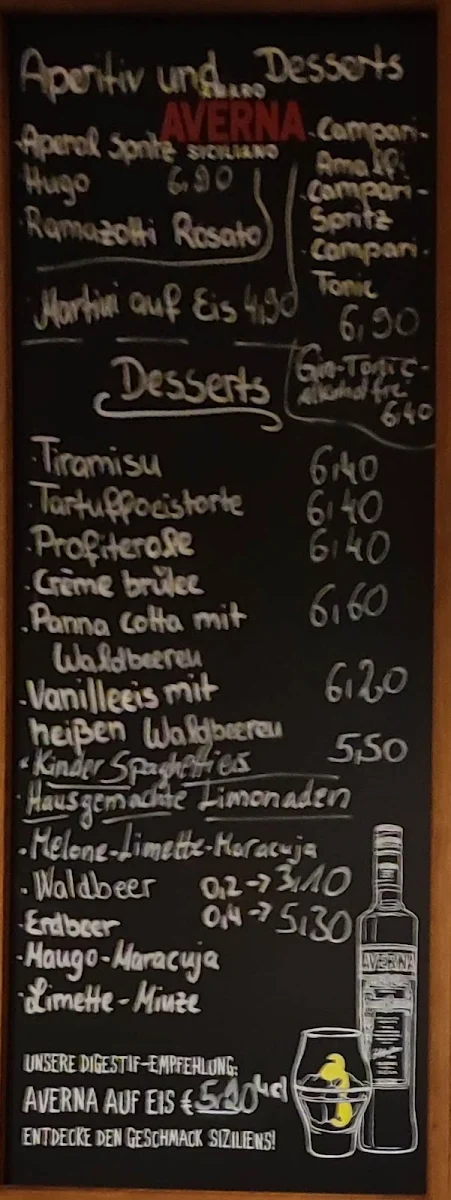 Aperitiv und Desserts
AMARO
AVERNA
SICILIANO
·Aperol Spritz
·Hugo 6,90
·Ramazotti Rosato
·Martini auf Eis 4,90
·Campari-
Amalfi
·Campari-
Spritz
·Campari-
Tonic
6,90
Gin-Tonic-
alkoholfrei
6,40
Desserts
·Tiramisu 6,40
·Tartuffoeistorte 6,40
·Profiterole 6,40
·Crème brûlee
·Panna Cotta mit 6,60
Waldbeeren
·Vanilleeis mit 6,20
heißen Waldbeeren
·Kinder Spaghettieis 5,50
·Hausgemachte Limonaden
·Melone-Limette-Maracuja
·Waldbeer 0,2→3,10
·Erdbeer 0,4→5,30
·Mango-Maracuja
·Limette-Minze
AVERNA
UNSERE DIGESTIF-EMPFEHLUNG:
AVERNA AUF EIS € 4cl
ENTDECKE DEN GESCHMACK SIZILIENS!